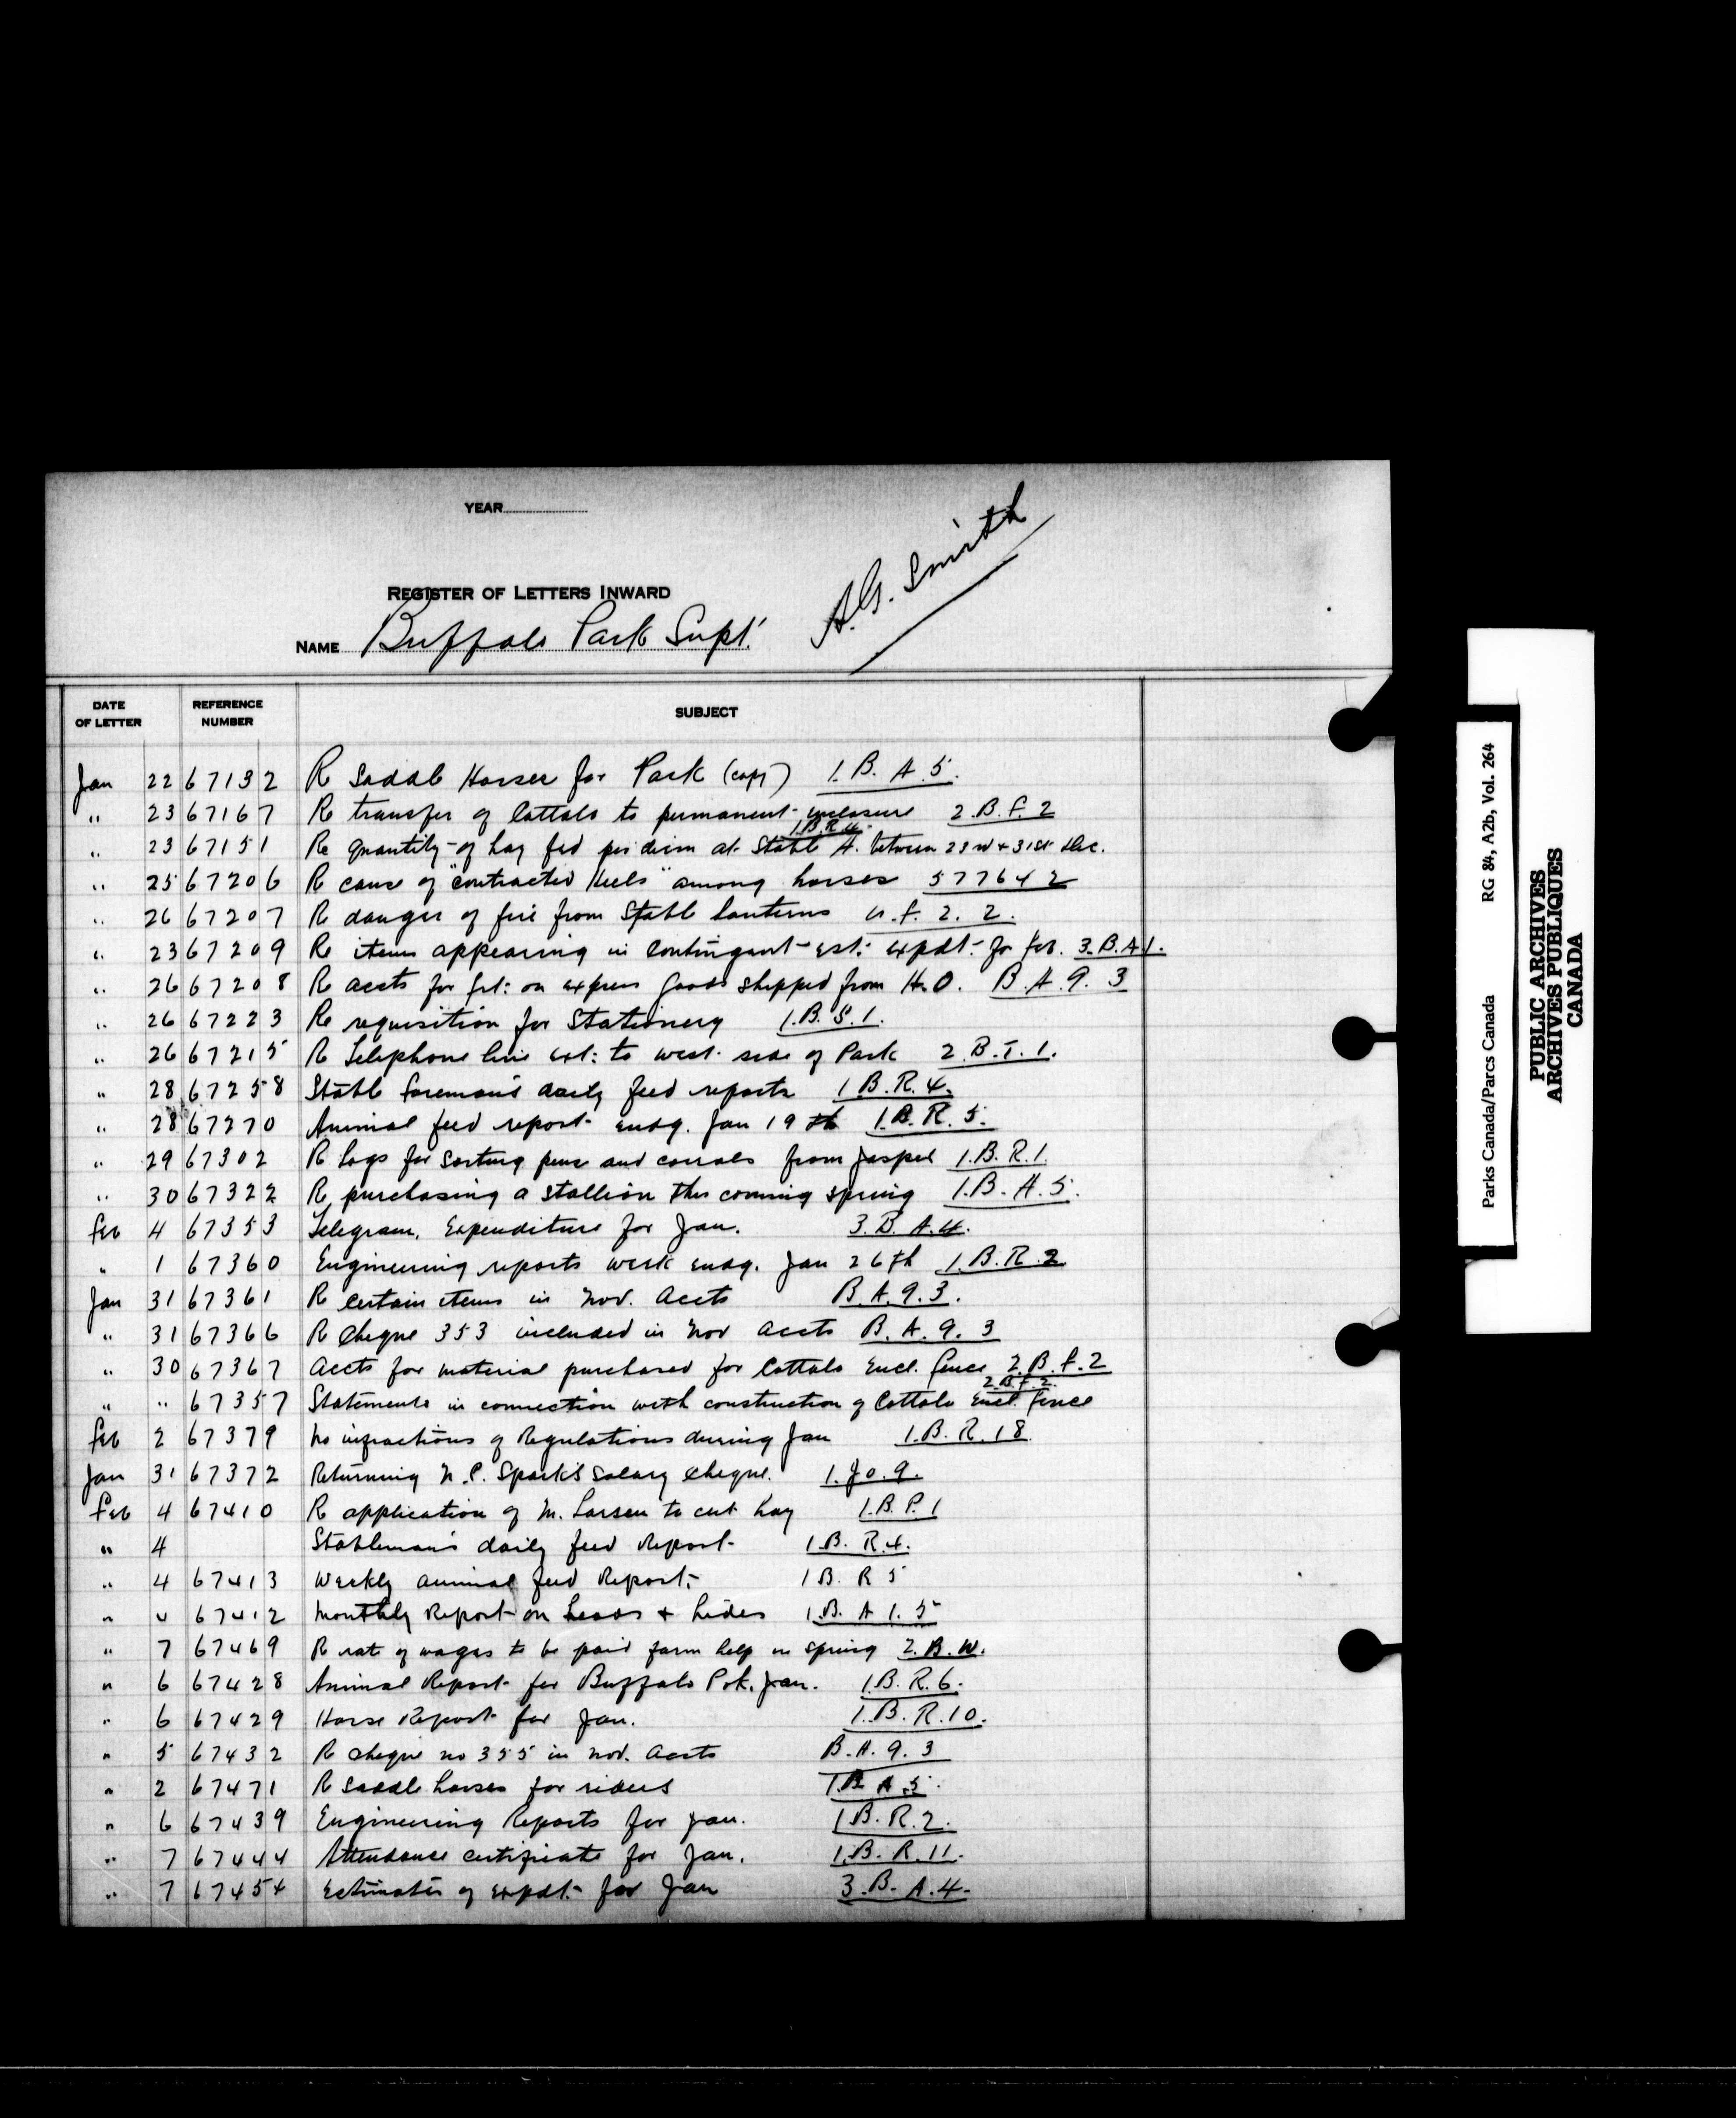 YEAR
A.G. Smith
REGISTER OF LETTERS INWARD
NAME Buffalo Park Supt.
DATE OF LETTER REFERENCE NUMBER SUBJECT
Jan 22 67132 R Saddle Horses for Park (copy) 1.B.A.5.
" 23 67167 Re transfer of Cattalo to permanent enclosure 2.B.F.2
" 23 67151 Re quantity of hay fed per diem at Stable A. between 23rd + 31st Dec. 1.B.R.4.
" 25 67206 R cause of "contracted heels" among horses 577642
" 26 67207 R danger of fire from Stable lanterns U.F.2.2.
" 23 67209 Re items appearing in Contingent Est: expdt. for Feb. 3.B.A.1.
" 26 67208 R accts for frt: on express goods shipped from H.O. B.A.9.3
" 26 67223 Re requisition for Stationery 1.B.S.1.
" 26 67215 R Telephone line ext: to west side of Park 2.B.T.1.
" 28 67258 Stable foreman's daily feed reports 1.B.R.4.
" 28 67270 Animal feed report endg. Jan 19th 1.B.R.5.
" 29 67302 R logs for sorting pens and corrals from Jasper 1.B.R.1.
" 30 67322 R purchasing a stallion this coming spring 1.B.A.5.
Feb 4 67353 Telegram, Expenditure for Jan. 3.B.A.4.
" 1 67360 Engineering reports week endg. Jan 26th 1.B.R.2
Jan 31 67361 R certain items in Nov. Accts B.A.9.3.
" 31 67366 R Cheque 353 included in Nov accts B.A.9.3
" 30 67367 Accts for material purchased for Cattalo Encl. fence 2.B.F.2
" " 67357 Statements in connection with construction of Cattalo Encl. fence 2.B.F.2.
Feb 2 67379 No infractions of Regulations during Jan 1.B.R.18.
Jan 31 67372 Returning N.C. Spark's salary cheque. 1.Jo.9.
Feb 4 67410 R application of M. Larsen to cut hay 1.B.P.1
" 4 Stableman's daily feed Report 1.B.R.4.
" 4 67413 Weekly animal feed Report. 1 B. R 5
" 4 67412 Monthly Report on heads + hides 1.B. A 1.5
" 7 67469 R rat of wages to be paid farm help in spring 2.B.W.
" 6 67428 Animal Report for Buffalo Pk. Jan. 1.B.R.6.
" 6 67429 Horse Report for Jan. 1.B.R.10.
" 5 67432 R cheque no 355 in Nov. Accts B.A.9.3
" 2 67471 R Saddle horses for riders 1.B A 5.
" 6 67439 Engineering Reports for Jan. 1.B.R.2.
" 7 67444 Attendance certificate for Jan. 1.B.R.11.
" 7 67454 Estimates of expdt. for Jan 3.B.A.4.
Parks Canada/Parcs Canada RG 84, A2b, Vol. 264
PUBLIC ARCHIVES
ARCHIVES PUBLIQUES
CANADA